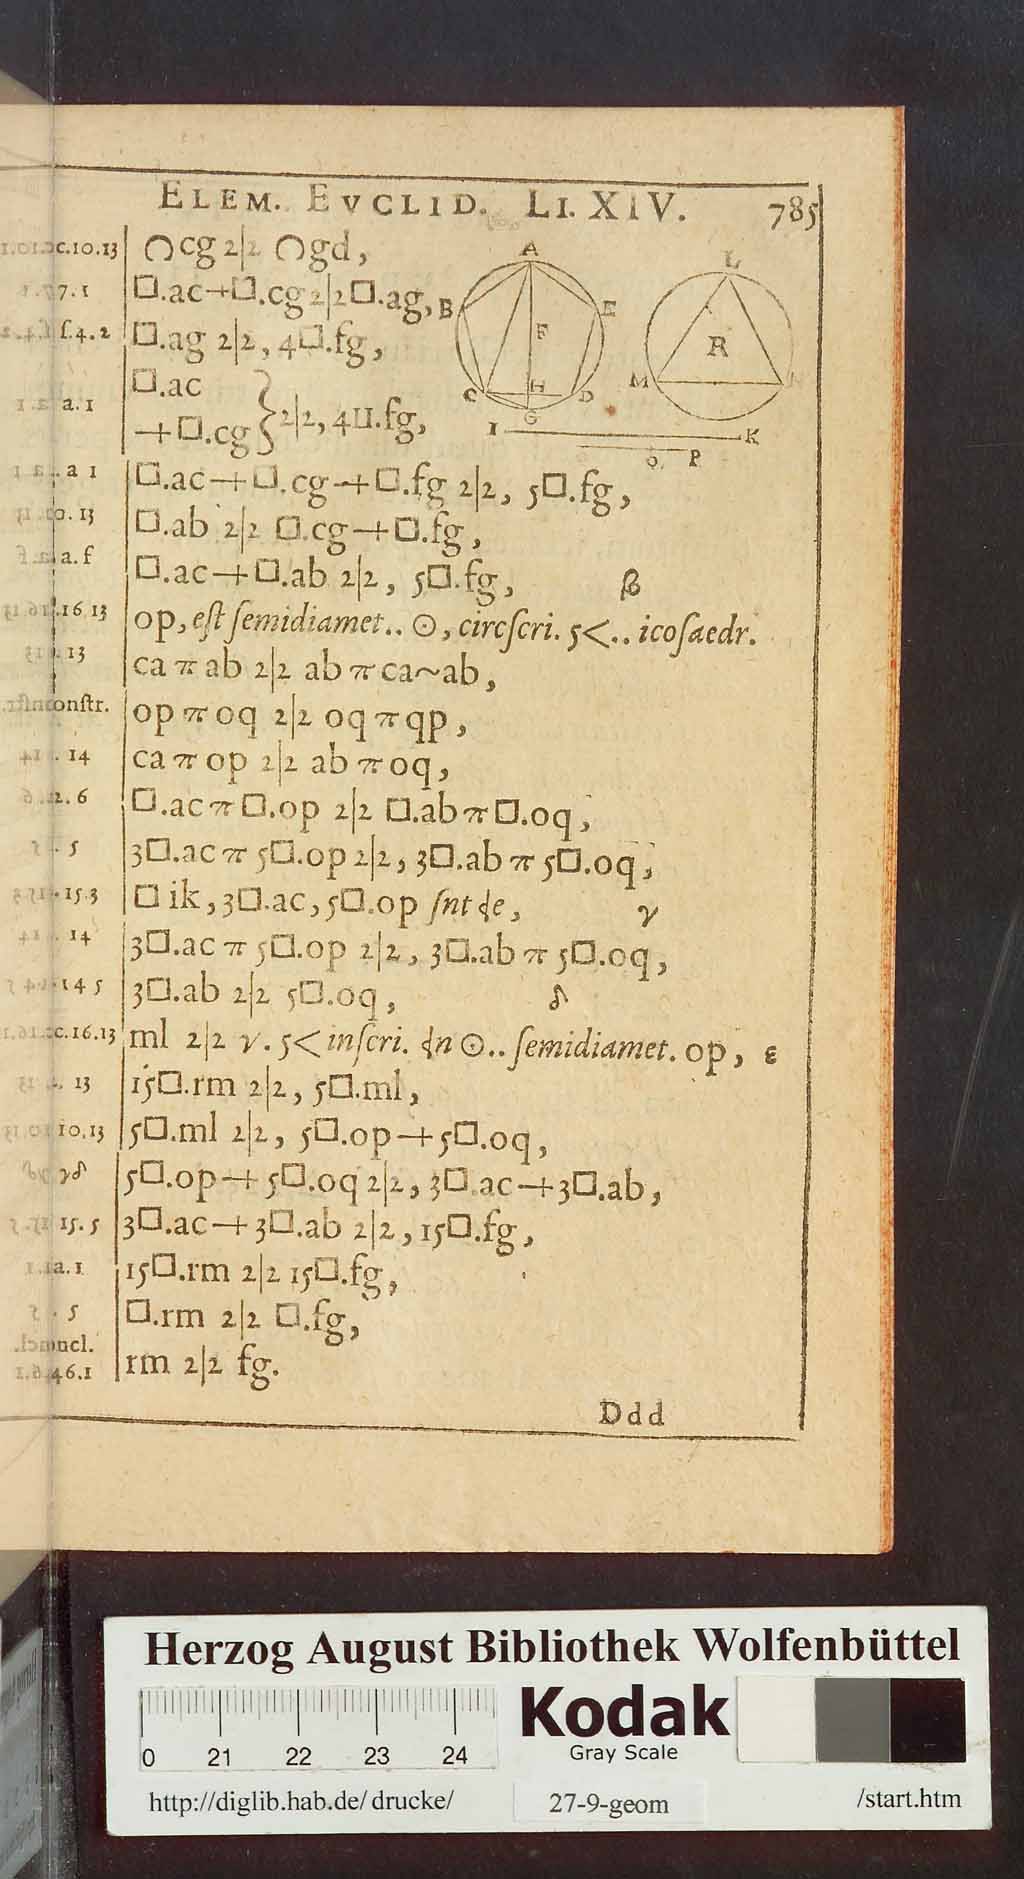 ELEM. EVCLID. LI. XIV. 785
c.10.13 ◠cg 2|2 ◠gd,
7.1 □.ac+□.cg 2|2 □.ag,
f.4.2 □.ag 2|2, 4□.fg,
□.ac
a.1 +□.cg } 2|2, 4□.fg,
a 1 □.ac+□.cg+□.fg 2|2, 5□.fg,
10.13 □.ab 2|2 □.cg+□.fg,
a.f □.ac+□.ab 2|2, 5□.fg, β
16 13 op, eſt ſemidiamet.. ⊙, circſcri. 5<.. icoſaedr.
13 ca π ab 2|2 ab π ca~ab,
conſtr. op π oq 2|2 oq π qp,
14 ca π op 2|2 ab π oq,
2.6 □.ac π □.op 2|2 □.ab π □.oq,
5 3□.ac π 5□.op 2|2, 3□.ab π 5□.oq,
15.3 □ ik, 3□.ac, 5□.op ſnt e, γ
14 3□.ac π 5□.op 2|2, 3□.ab π 5□.oq,
14 5 3□.ab 2|2 5□.oq, δ
c.16.13 ml 2|2 γ. 5< inſcri. n ⊙.. ſemidiamet. op, ε
13 15□.rm 2|2, 5□.ml,
10.13 5□.ml 2|2, 5□.op+5□.oq,
γδ 5□.op+5□.oq 2|2, 3□.ac+3□.ab,
15.5 3□.ac+3□.ab 2|2, 15□.fg,
1a.1 15□.rm 2|2 15□.fg,
5 □.rm 2|2 □.fg,
ncl.
46.1 rm 2|2 fg.
Ddd
A
B E
F
C H D
G
L
R
M N
I K
P
Herzog August Bibliothek Wolfenbüttel
0 21 22 23 24
Kodak
Gray Scale
http://diglib.hab.de/ drucke/ 27-9-geom /start.htm